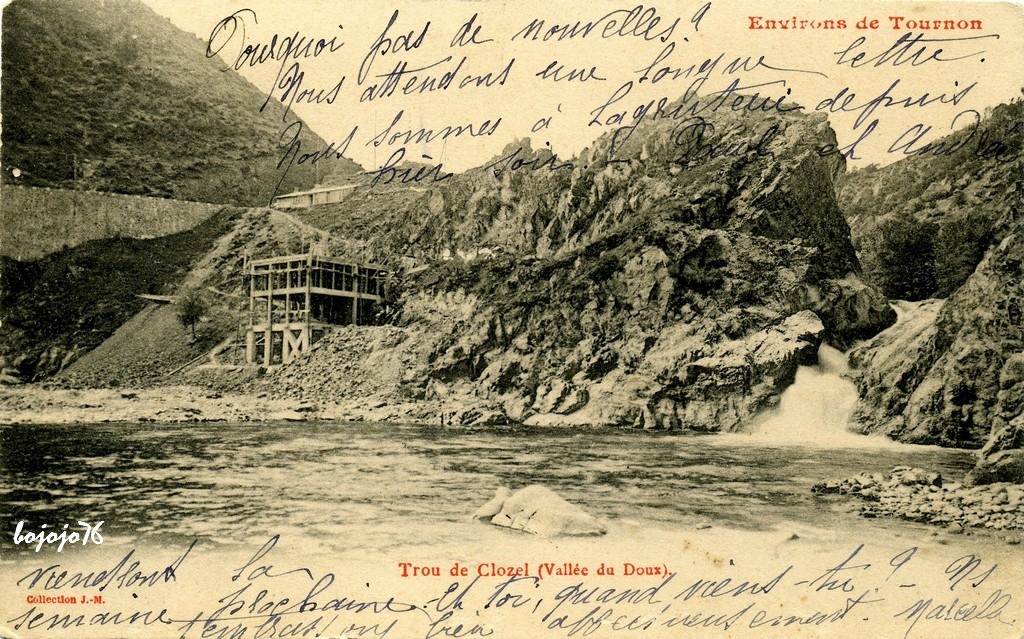 Environs de Tournon
Pourquoi pas de nouvelles?
Nous attendons une longue lettre.
Nous sommes à depuis
hier soir - Paul et André
bojojo76
Trou de Clozel (Vallée du Doux).
Collection J.-M.
viendront la
semaine prochaine. Et toi, quand viens-tu? - Ns
t'embrassons bien affectueusement. Marcelle